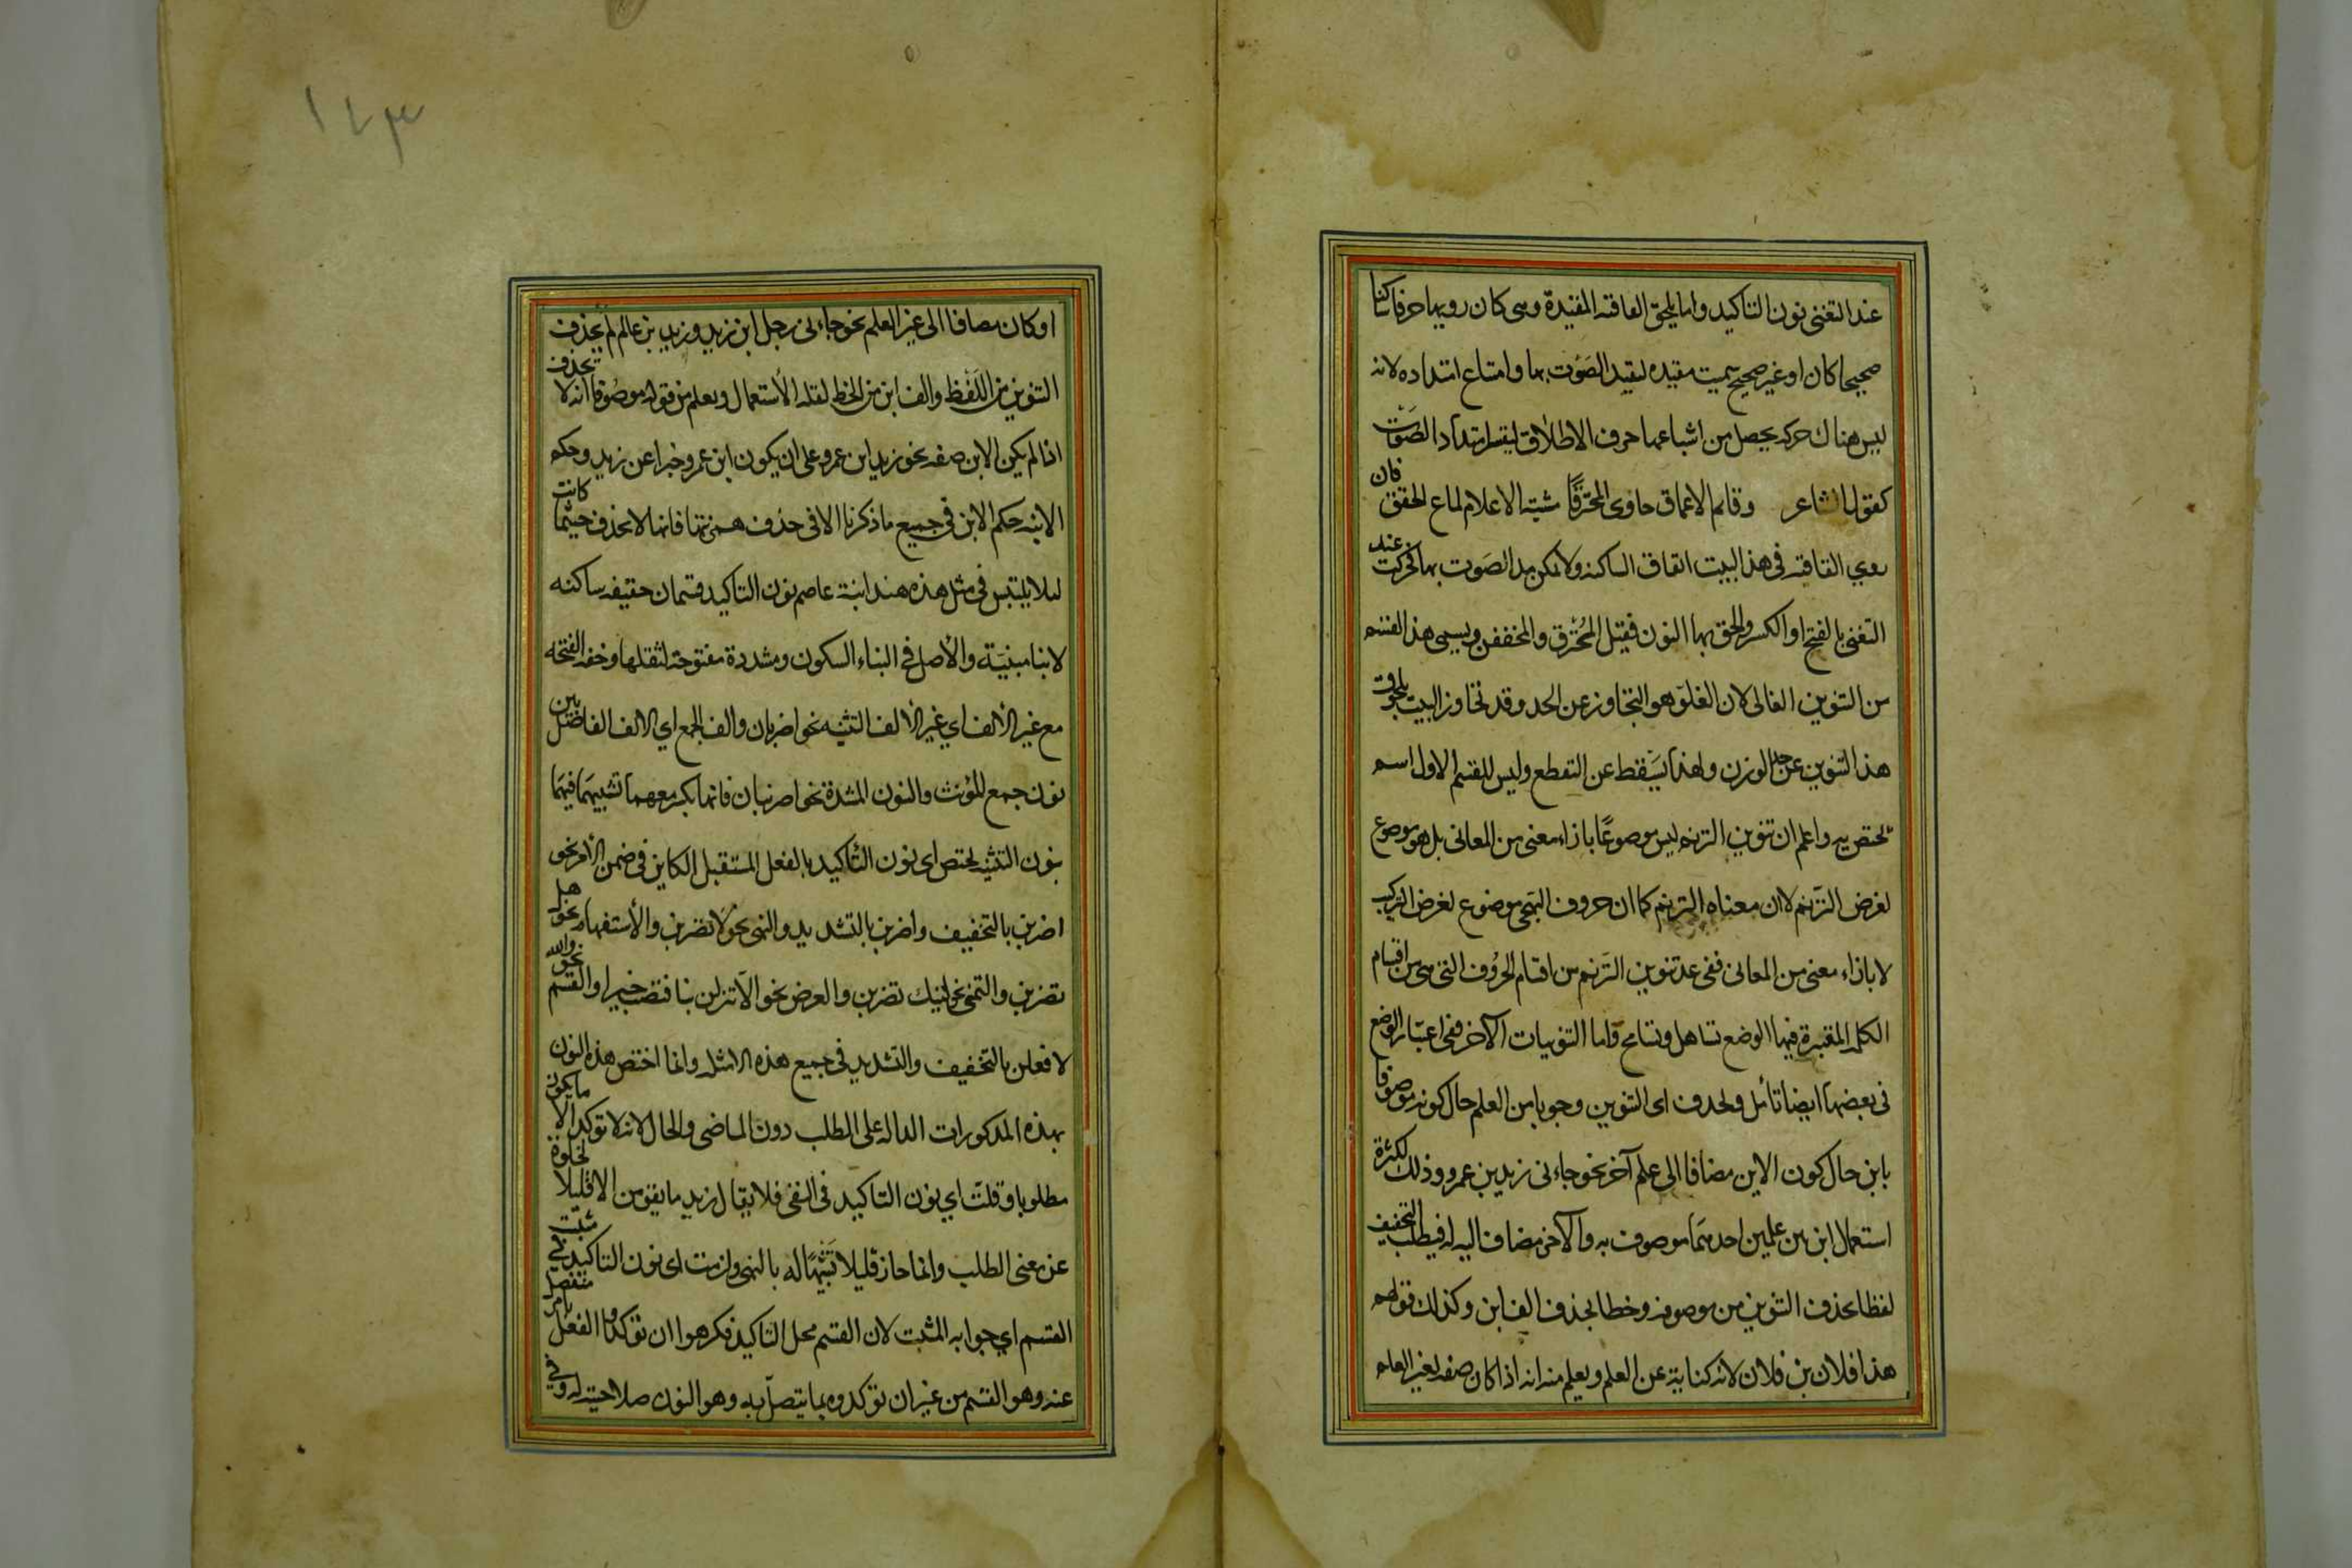 عند التغنى نون التاكيد واما يلحق القافية المقيدة وهى كان رويها حرفا ساكنا
صحيحا كان او غير صحيح سميت مقيدة لتقييد الصَوْت بها وامتناع امتداده لانه
ليس هناك حركة يحصل من اشباعها حرف الاطلاق ليتيسر امتداد الصَوْت
كقول الشاعر وقاتم الاعماق حاوى المخترقًا مشتبه الاعلام لماع الخفق فان
روي القافية فى هذا البيت القاف الساكنة ولا يمكن مد الصَوت بها فحركت عند
التغنى بالفتح او الكسر والحق بها النون فقيل المُخترق والخفقن ويسمى هذا القسم
من التنوين الغالى لان الغلوّ هو التجاوز عن الحد وقد تجاوز البيت بلحوق
هذا التنوين عن حد الوزن ولهذا يَسْقط عن التقطع وليس للقسم الاول اسم
يختص به واعلم ان تنوين الترنم ليس موصوعًا بازاء معنى من المعانى بل هو موصوع
لغرض التَرنم لان معناه الترنم كما ان حروف التهجى موضوع لغرض التركيب
لا بازاء معنى من المعانى ففى عد تنوين التَرنم من اقسام الحرُوف التى هى من اقسام
الكلمة المعتبرة فيها الوضع تساهل وتسامح وّاما التنوينات الآخر ففى اعتبار الوضع
فى بعضها ايضا تأمل ويحذف اى التنوين وجوبا من العلم حال كونه موصوفا
بابن حال كون الابن مضافا الى علم آخر نحو جاءنى زيد بن عمرو وذلك لكثرة
استعمال ابن بين علمين احدهمَا موصوف به والآخر مضاف اليه له فيطلب التخفيف
لفظا بحذف التنوين من موصوفه وخطا بحذف الف ابن وكذلك قولهم
هذا فلان بن فلان لانه كناية عن العلم ويعلم منه انه اذا كان صفة لغير العلم
١٤٣
او كان مضافا الى غير العلم نحو جاءنى رجل ابن زيد وزيد بن عالم لم يحذف
التنوين من اللَفْظ والف ابن من الخط لقلة الأستعمال ويعلم من قوله موصُوفا انه لا تحذف
اذا لم يكن الابن صفة نحو زيد ابن عمرو على ان يكون ابن عمرو خبرا عن زيد وحكم
الابنة حكم الابن فى جميع ما ذكرنا الا فى حذف همزتها فانها لا يحذف حيثما كانت
لئلا يلتبس فى مثل هذه هند ابنة عاصم نون التاكيد قسمان خفيفة ساكنة
لانها مبنيَة والأصل فى البناء السكون ومشددة مفتوحة لثقلها وخفة الفتحة
مع غير الألف اي غير الألف التثنيه نحو اضربان والف الجمع اي الالف الفاصل بين
نون جمع للؤنث والنون المشددة نحو اضربنان فانها بكسر معهما تشبيهَا فيهمَا
بنون التثنيه يختص اى نون التأكيد بالفعل المستقبل الكاين فى ضمن الأمر نحو
اضربن بالتخفيف واضربن بالتشديد والنهى نحو لَا تضربن والأستفهام نحو هل
تضربن والتمنى نحو ليتك تضربن والعرض نحو الَا تنزلن بنا فتصيب خيرا والقسم نحو والله
لافعلن بالتخفيف والتشديد فى جميع هذه الامثلة وانما اختص هذه النون
بهذه المذكورات الدالة على الطلب دون الماضى والحال لانه لا توكد الا ما يكون
مطلوبا وقلت اي نون التاكيد فى النفى فلا يقال زيد ما يقومن الا قليلا لخلوة
عن معنى الطلب وانما جاز قليلا تَشْبيْهًا له بالنهى ولزمت اى نون التاكيد فى مثبت
القسم اي جوابه المثبت لان القسم محل التاكيد فكرهوا ان توكدوا الفعل بامر منفصل
عنه وهو القسم من غير ان توكدوه بما يتصل به وهو النون صلاحيته له وفى